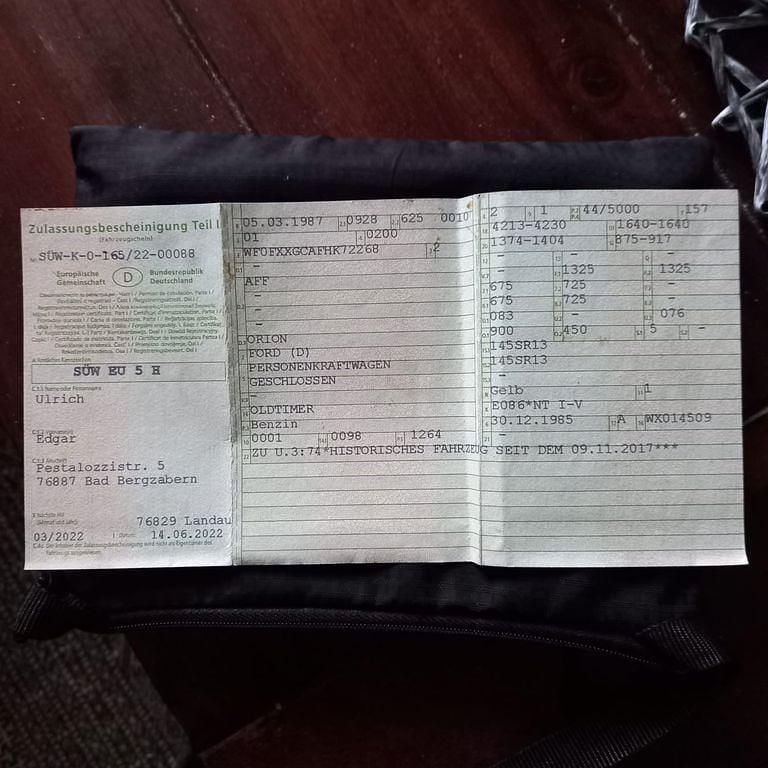 Zulassungsbescheinigung Teil I
(Fahrzeugschein)
Nr. SÜW-K-0-165/22-00088
Europäische Gemeinschaft
D
Bundesrepublik Deutschland
SÜW EU 5 H
Ulrich
Edgar
Pestalozzistr. 5
76887 Bad Bergzabern
76829 Landau
03/2022
14.06.2022
05.03.1987 0928 625 0010
01 0200
WF0FXXGCAFHK72268 2
-
AFF
-
-
-
ORION
FORD (D)
PERSONENKRAFTWAGEN
GESCHLOSSEN
-
OLDTIMER
Benzin
0001 0098 1264
ZU U.3:74*HISTORISCHES FAHRZEUG SEIT DEM 09.11.2017***
2 1 44/5000 157
4213-4230 1640-1640
1374-1404 875-917
- - -
- 1325 - 1325
675 725 -
675 725 -
083 - 076
900 450 5 -
145SR13
145SR13
-
Gelb 1
E086*NT I-V
30.12.1985 A WX014509
-